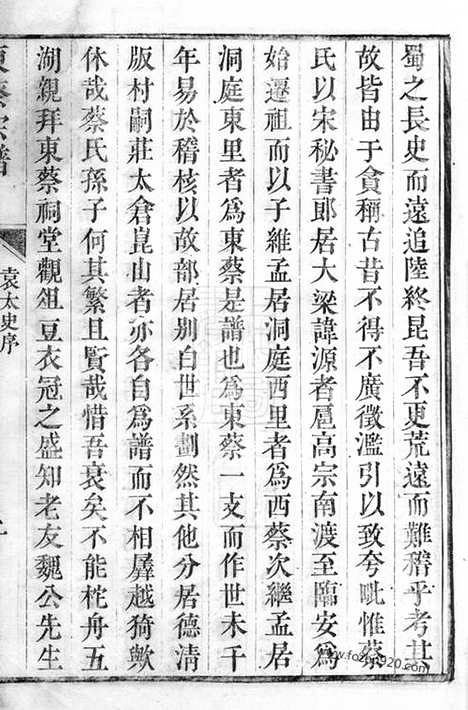 蜀之長史而遠追陸終昆吾不更荒遠而難稽乎考其
故皆由于貪稱古昔不得不廣徵濫引以致夸毗惟蔡
氏以宋秘書郎居大梁諱源者扈高宗南渡至臨安爲
始遷祖而以子維孟居洞庭西里者爲西蔡次繼孟居
洞庭東里者爲東蔡是譜也爲東蔡一支而作世未千
年易於稽核以故部居別白世系劃然其他分居德清
版村嗣莊太倉崑山者亦各自爲譜而不相羼越猗歟
休哉蔡氏孫子何其繁且賢哉惜吾衰矣不能柁舟五
湖親拜東蔡祠堂觀俎豆衣冠之盛知老友魏公先生
東蔡宗譜
袁太史序
www.fozu2020.com